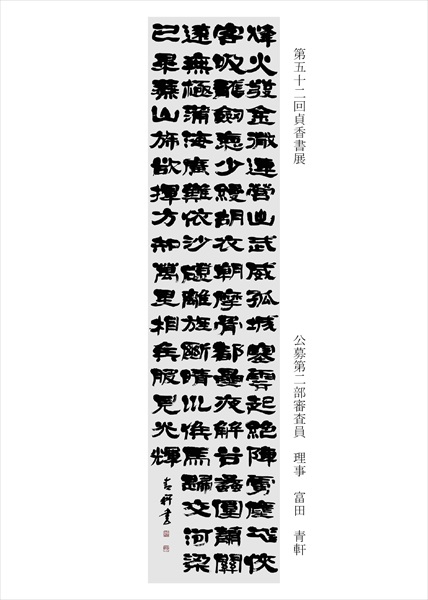 第五十二回貞香書展
公募第二部審査員　理事　富田　青軒
烽火發金微連營出武威孤城寒雲起絶陣虜塵飛俠
客吸龍劔惡少縵胡衣朝摩骨都壘夜解谷蠡圍蕭關
遠無極蒲海廣難依沙磴離旌斷晴川候馬歸交河梁
已畢燕山旆欲揮方知萬里相侯服見光輝
青軒書